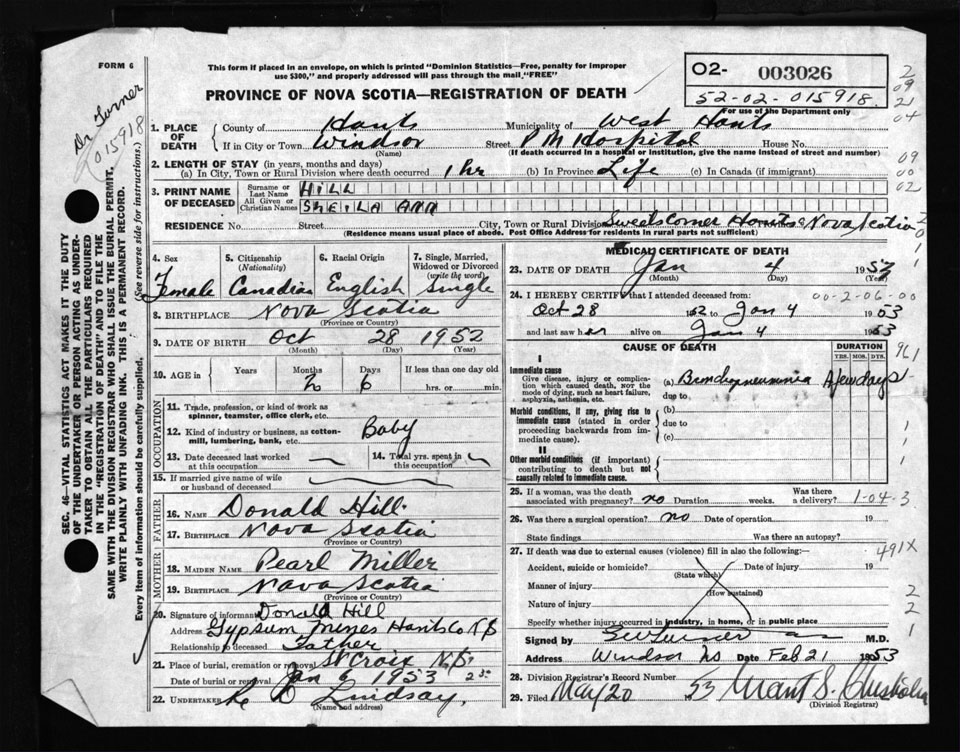 FORM 6
This form if placed in an envelope, on which is printed "Dominion Statistics—Free, penalty for improper
use $300," and properly addressed will pass through the mail "FREE"
PROVINCE OF NOVA SCOTIA—REGISTRATION OF DEATH
O2- 003026
52-02-015918
For use of the Department only
Dr Turner
015918
SEC. 46—VITAL STATISTICS ACT MAKES IT THE DUTY
OF THE UNDERTAKER OR PERSON ACTING AS UNDER-
TAKER TO OBTAIN ALL THE PARTICULARS REQUIRED
IN THE "REGISTRATION OF DEATH" AND TO FILE THE
SAME WITH THE DIVISION REGISTRAR WHO SHALL ISSUE THE BURIAL PERMIT,
WRITE PLAINLY WITH UNFADING INK. THIS IS A PERMANENT RECORD.
Every item of information should be carefully supplied. (See reverse side for instructions.)
1. PLACE OF DEATH
County of Hants Municipality of West Hants
If in City or Town Windsor Street P M Hospital House No.
(Name) (If death occurred in a hospital or institution, give the name instead of street and number)
2. LENGTH OF STAY (in years, months and days)
(a) In City, Town or Rural Division where death occurred 1 hr (b) In Province Life (c) In Canada (if immigrant)
3. PRINT NAME OF DECEASED
Surname or Last Name HILL
All Given or Christian Names SHEILA ANN
RESIDENCE No. Street City, Town or Rural Division Sweets Corner Hants Nova Scotia
(Residence means usual place of abode. Post Office Address for residents in rural parts not sufficient)
4. Sex Female
5. Citizenship (Nationality) Canadian
6. Racial Origin English
7. Single, Married, Widowed or Divorced (write the word) Single
8. BIRTHPLACE Nova Scotia
(Province or Country)
9. DATE OF BIRTH Oct 28 1952
(Month) (Day) (Year)
10. AGE in Years Months 2 Days 6 If less than one day old
hrs. or min.
OCCUPATION
11. Trade, profession, or kind of work as
spinner, teamster, office clerk, etc.
12. Kind of industry or business, as cotton-
mill, lumbering, bank, etc. Baby
13. Date deceased last worked
at this occupation
14. Total yrs. spent in
this occupation
15. If married give name of wife
or husband of deceased
FATHER
16. NAME Donald Hill
17. BIRTHPLACE Nova Scotia
(Province or Country)
MOTHER
18. MAIDEN NAME Pearl Miller
19. BIRTHPLACE Nova Scotia
(Province or Country)
20. Signature of informant Donald Hill
Address Gypsum Mines Hants Co N S
Relationship to deceased Father
21. Place of burial, cremation or removal St Croix N.S.
Date of burial or removal Jan 6 1953
22. UNDERTAKER Lindsay
(Name and address)
MEDICAL CERTIFICATE OF DEATH
23. DATE OF DEATH Jan 4 1953
(Month) (Day) (Year)
24. I HEREBY CERTIFY that I attended deceased from: 00-2-06-00
Oct 28 1952 to Jan 4 1953
and last saw her alive on Jan 4 1953
CAUSE OF DEATH DURATION
YRS. MOS. DYS.
I
Immediate cause
Give disease, injury or complica-
tion which caused death, NOT the
mode of dying, such as heart failure,
asphyxia, asthenia, etc.
(a) Bronchopneumonia A few days
due to
Morbid conditions, if any, giving rise to
immediate cause (stated in order
proceeding backwards from im-
mediate cause).
(b)
due to
(c)
II
Other morbid conditions (if important)
contributing to death but not
causally related to immediate cause.
25. If a woman, was the death
associated with pregnancy? no Duration weeks. Was there
a delivery? 1-04-3
26. Was there a surgical operation? no Date of operation 19
State findings Was there an autopsy?
27. If death was due to external causes (violence) fill in also the following:—
491X
Accident, suicide or homicide? Date of injury 19
(State which)
Manner of injury
(How sustained)
Nature of injury
Specify whether injury occurred in industry, in home, or in public place
Signed by Turner M.D.
Address Windsor NS Date Feb 21 1953
28. Division Registrar's Record Number
29. Filed May 20 53 Grant S. Chisholm
(Division Registrar)
2
09
21
04
09
00
02
961